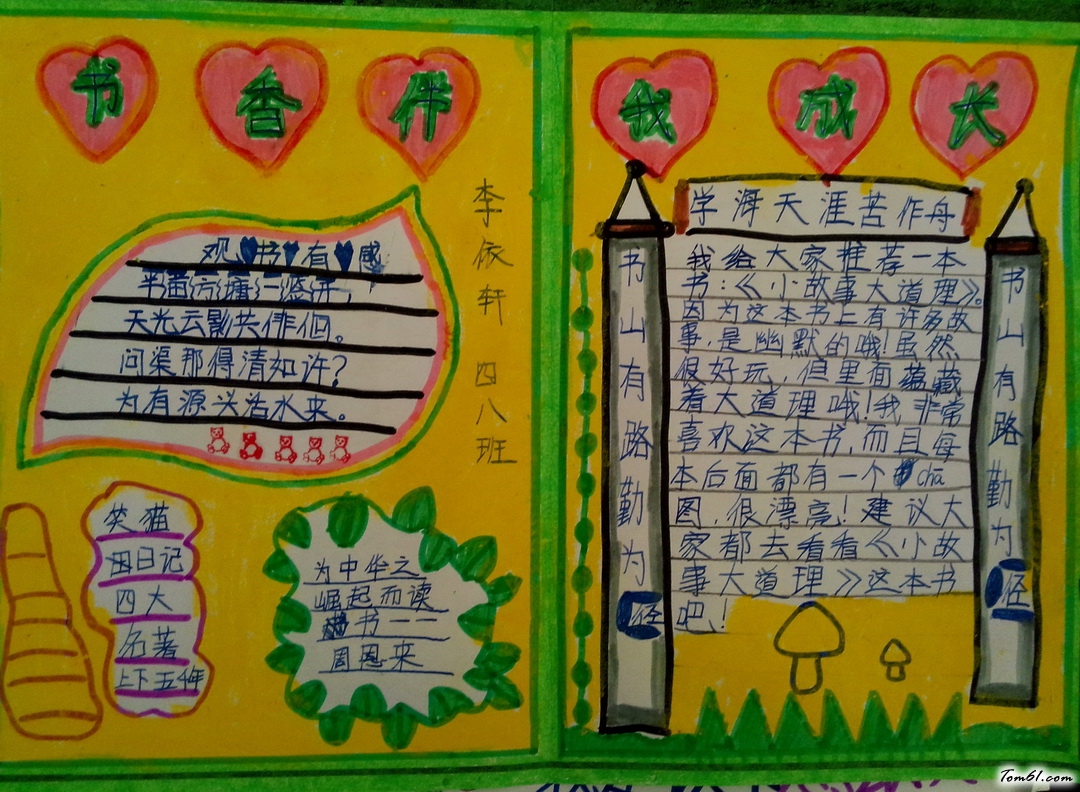 书香伴
我成长
李依轩 四八班
观书有感
半亩方塘一鉴开,
天光云影共徘徊。
问渠那得清如许?
为有源头活水来。
笑猫
日记
四大
名著
上下五千年
为中华之
崛起而读
书一一
周恩来
学海天涯苦作舟
书山有路勤为径
我给大家推荐一本
书:《小故事大道理》。
因为这本书上有许多故
事,是幽默的哦!虽然
很好玩,但里面蕴藏
着大道理哦!我非常
喜欢这本书,而且每
本后面都有一个chā
图,很漂亮!建议大
家都去看看《小故
事大道理》这本书
吧!
书山有路勤为径
Tom61.com